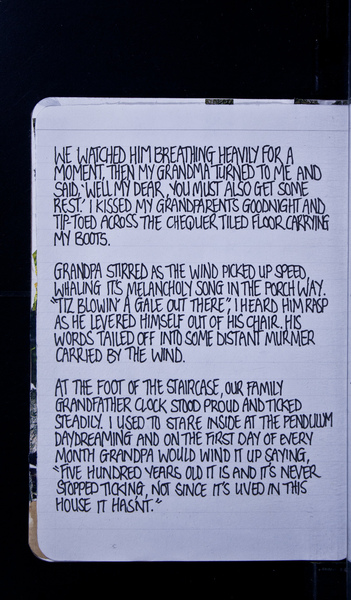 WE WATCHED HIM BREATHING HEAVILY FOR A
MOMENT, THEN MY GRANDMA TURNED TO ME AND
SAID, 'WELL MY DEAR, YOU MUST ALSO GET SOME
REST.' I KISSED MY GRANDPARENTS GOODNIGHT AND
TIP-TOED ACROSS THE CHEQUER TILED FLOOR CARRYING
MY BOOTS.
GRANDPA STIRRED AS THE WIND PICKED UP SPEED,
WHALING IT'S MELANCHOLY SONG IN THE PORCH WAY.
"TIZ BLOWIN' A GALE OUT THERE", I HEARD HIM RASP
AS HE LEVERED HIMSELF OUT OF HIS CHAIR. HIS
WORDS TAILED OFF INTO SOME DISTANT MURMER
CARRIED BY THE WIND.
AT THE FOOT OF THE STAIRCASE, OUR FAMILY
GRANDFATHER CLOCK STOOD PROUD AND TICKED
STEADILY. I USED TO STARE INSIDE AT THE PENDULUM
DAYDREAMING AND ON THE FIRST DAY OF EVERY
MONTH GRANDPA WOULD WIND IT UP SAYING,
"FIVE HUNDRED YEARS OLD IT IS AND IT'S NEVER
STOPPED TICKING, NOT SINCE IT'S LIVED IN THIS
HOUSE IT HASN'T."